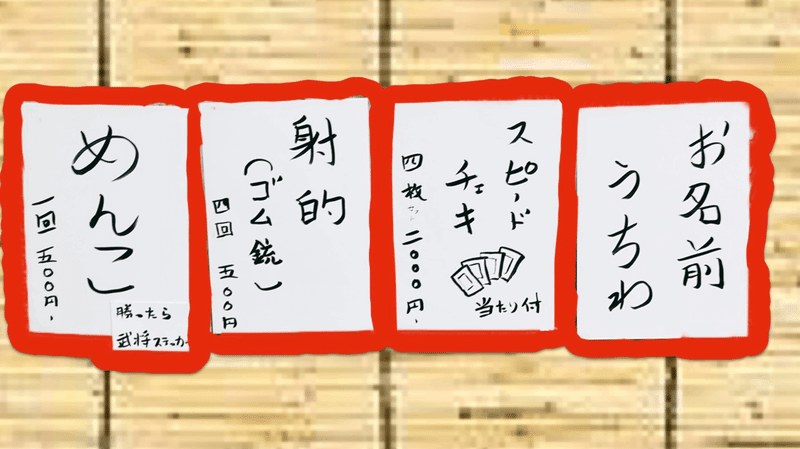 お名前
うちわ
スピード
チェキ
四枚
二〇〇〇円
当たり付
射的
(ゴム銃)
四回 五〇〇円
めんこ
一回 五〇〇円
勝ったら
武将ステッカー